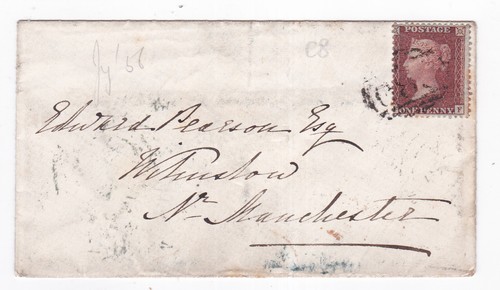 Jy '56
C8
POSTAGE
ONE PENNY
F
Edward Pearson Esq
Wilmslow
Nr. Manchester